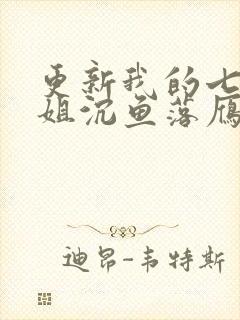 更新我的七
姐沉鱼落雁
迪昂-韦特斯